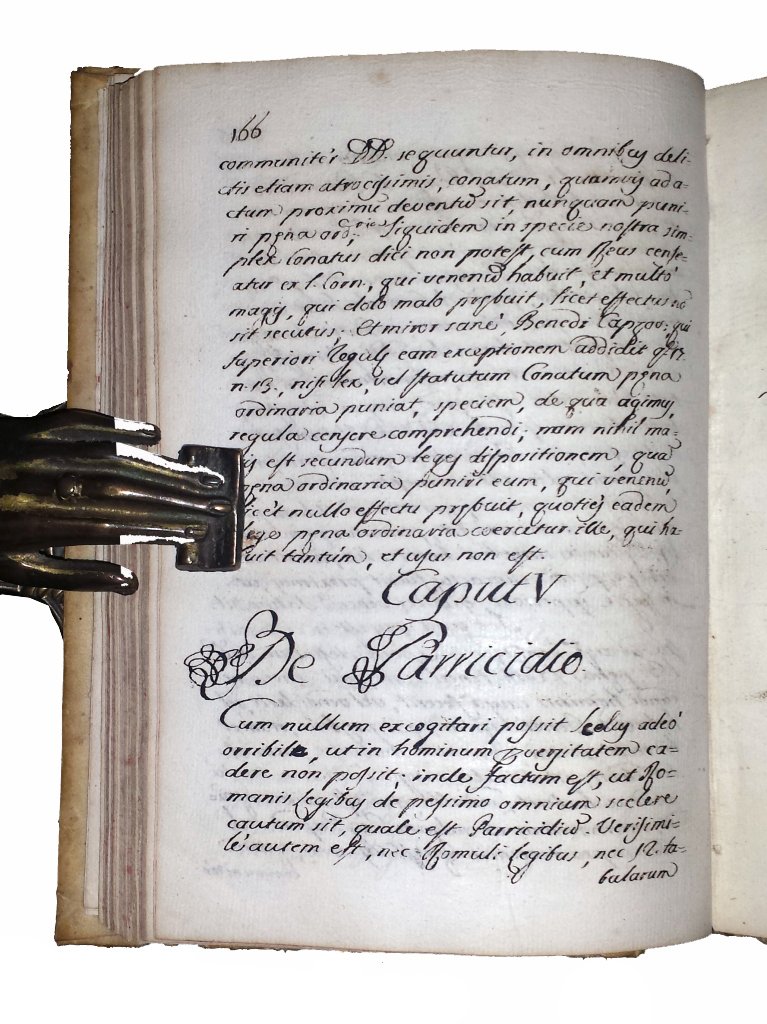 166
communitèr DD. sequuntur, in omnibus deli-
ctis etiam atrocissimis, conatum, quamvis ad a-
ctum proximū deventū sit, nunquam puni-
ri pęna ord.ria; siquidem in specie nostra sim-
plex Conatus dici non potest, cum Reus cense-
atur ex l. Corn., qui venenū habuit, et multò
magis, qui dolo malo prębuit, licet effectus nō
sit secutus. Et miror sanè, Bened. Carpzov: qui
superiori regulę eam exceptionem addidit
n. 13., nisi lex, vel statutum Conatum pęna
ordinaria puniat, speciem, de qua agimus,
regula censere comprehendi; nam nihil ma-
is est secundum leges dispositionem, qua
pęna ordinaria puniri eum, qui venenū,
licèt nullo effectu prębuit, quoties eadem
lege pęna ordinaria coercetur ille, qui ha-
buit tantùm, et usus non est.
Caput V
De Parricidio
Cum nullum excogitari possit scelus adeò
orribile, ut in hominum perversitatem ca-
dere non possit; inde factum est, ut Ro-
manis legibus de pessimo omnium scelere
cautum sit, quale est Parricidiū. Verisimi-
le autem est, nec Romuli legibus, nec 12. ta-
bularum